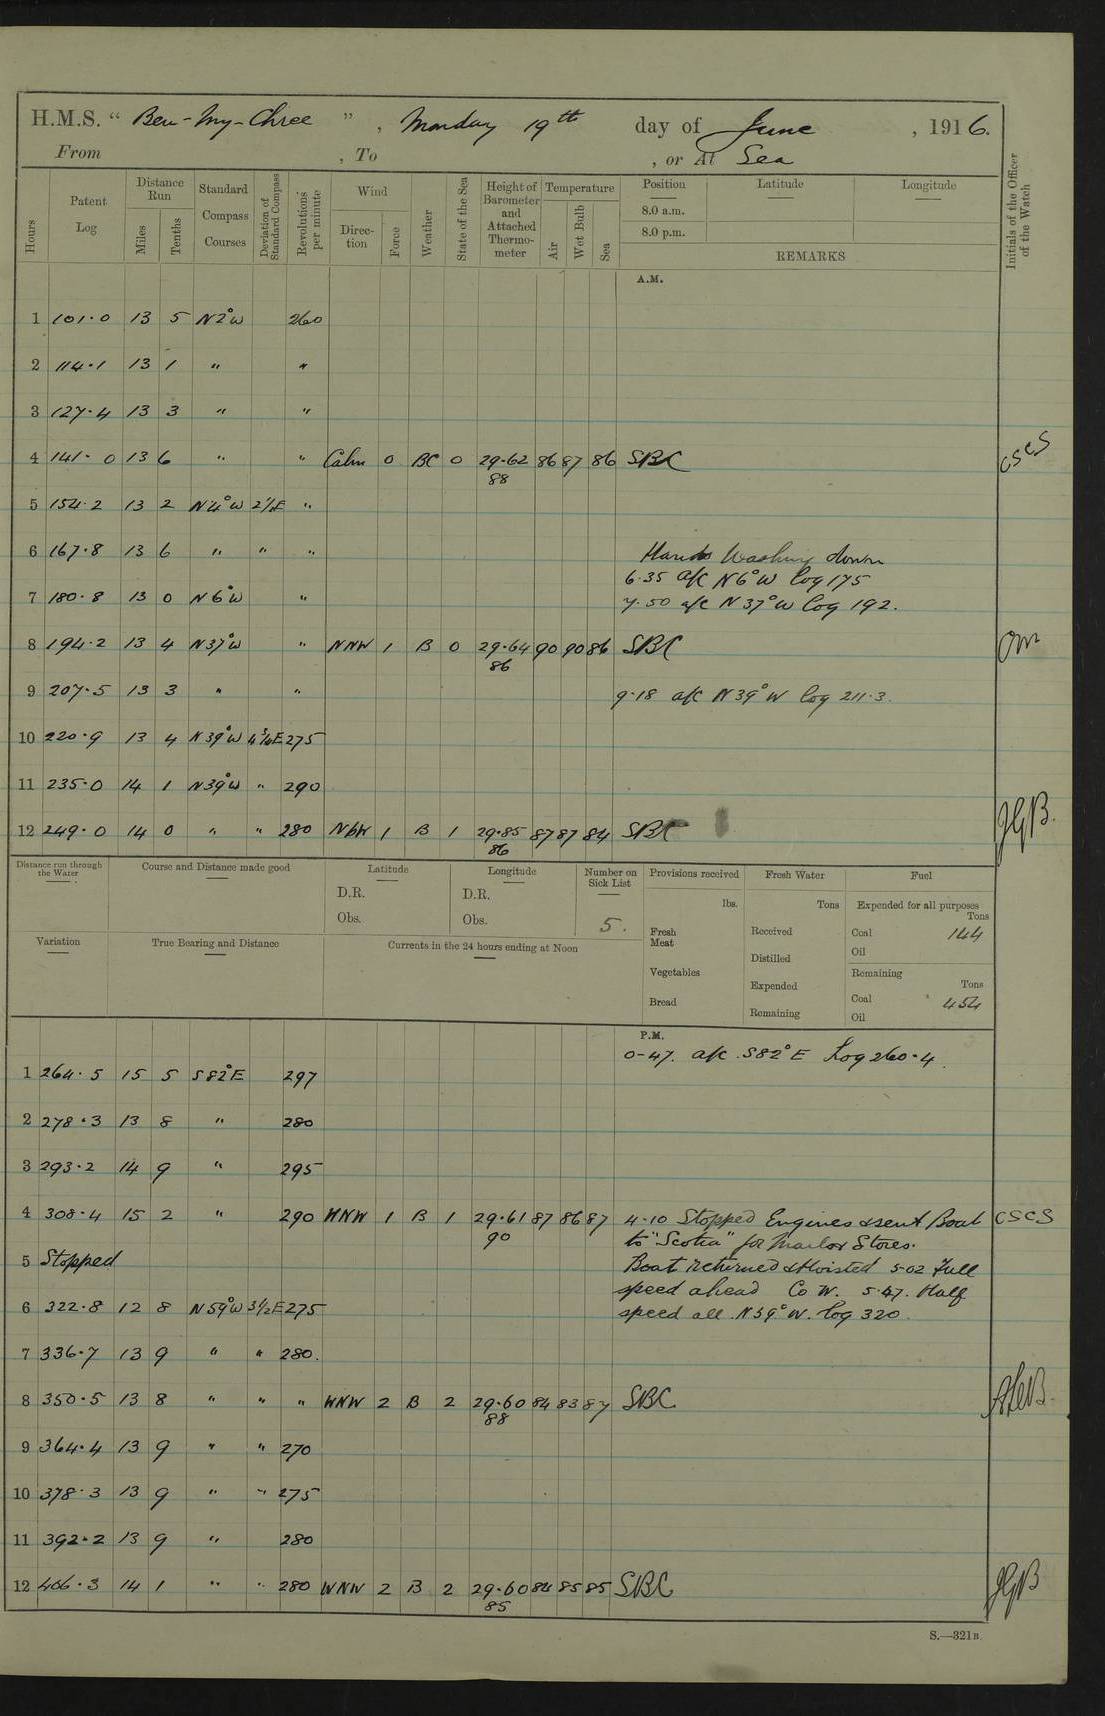 H.M.S. “ Ben-My-Chree ” , Monday 19th day of June , 1916.
From , To , or At Sea
Hours
Patent Log
Distance Run
Miles
Tenths
Standard Compass Courses
Deviation of Standard Compass
Revolutions per minute
Wind
Direction
Force
Weather
State of the Sea
Height of Barometer and Attached Thermometer
Temperature
Air
Wet Bulb
Sea
Position Latitude Longitude
8.0 a.m.
8.0 p.m.
REMARKS
Initials of the Officer of the Watch
A.M.
1 101.0 13 5 N2°W 260
2 114.1 13 1 " "
3 127.4 13 3 " "
4 141.0 13 6 " " Calm 0 BC 0 29.62 86 87 86 SBC CSCS
88
5 154.2 13 2 N4°W "
6 167.8 13 6 " " " Hands Washing down
6.35 a/c N6°W log 175
7 180.8 13 0 N6°W " 7.50 a/c N37°W log 192.
8 194.2 13 4 N37°W " NNW 1 B 0 29.64 90 90 86 SBC
86
9 207.5 13 3 " " 9.18 a/c N39°W log 211.3.
10 220.9 13 4 N39°W 4¾E 275
11 235.0 14 1 N39°W " 290
12 249.0 14 0 " " 280 NbW 1 B 1 29.85 87 87 84 SBC JGB.
86
Distance run through the Water
Course and Distance made good
Latitude
D.R.
Obs.
Longitude
D.R.
Obs.
Number on Sick List
5.
Provisions received
lbs.
Fresh Meat
Vegetables
Bread
Fresh Water
Tons
Received
Distilled
Expended
Remaining
Fuel
Expended for all purposes
Tons
Coal 144
Oil
Remaining
Tons
Coal 454
Oil
Variation
True Bearing and Distance
Currents in the 24 hours ending at Noon
P.M.
0-47. a/c S82°E Log 260.4.
1 264.5 15 5 S82°E 297
2 278.3 13 8 " 280
3 293.2 14 9 " 295
4 308.4 15 2 " 290 WNW 1 B 1 29.61 87 86 87 4.10 Stopped Engines & sent Boat CSCS
90 to "Scotia" for Mails & Stores.
5 Stopped Boat returned & Hoisted 5-02 Full
speed ahead Co W. 5.47. Half
6 322.8 12 8 N59°W 3½E 275 speed all N59°W. log 320.
7 336.7 13 9 " " 280.
8 350.5 13 8 " " " WNW 2 B 2 29.60 84 83 87 SBC
88
9 364.4 13 9 " " 270
10 378.3 13 9 " " 275
11 392.2 13 9 " 280
12 406.3 14 1 " " 280 WNW 2 B 2 29.60 84 85 85 SBC JGB
85
S.—321B.